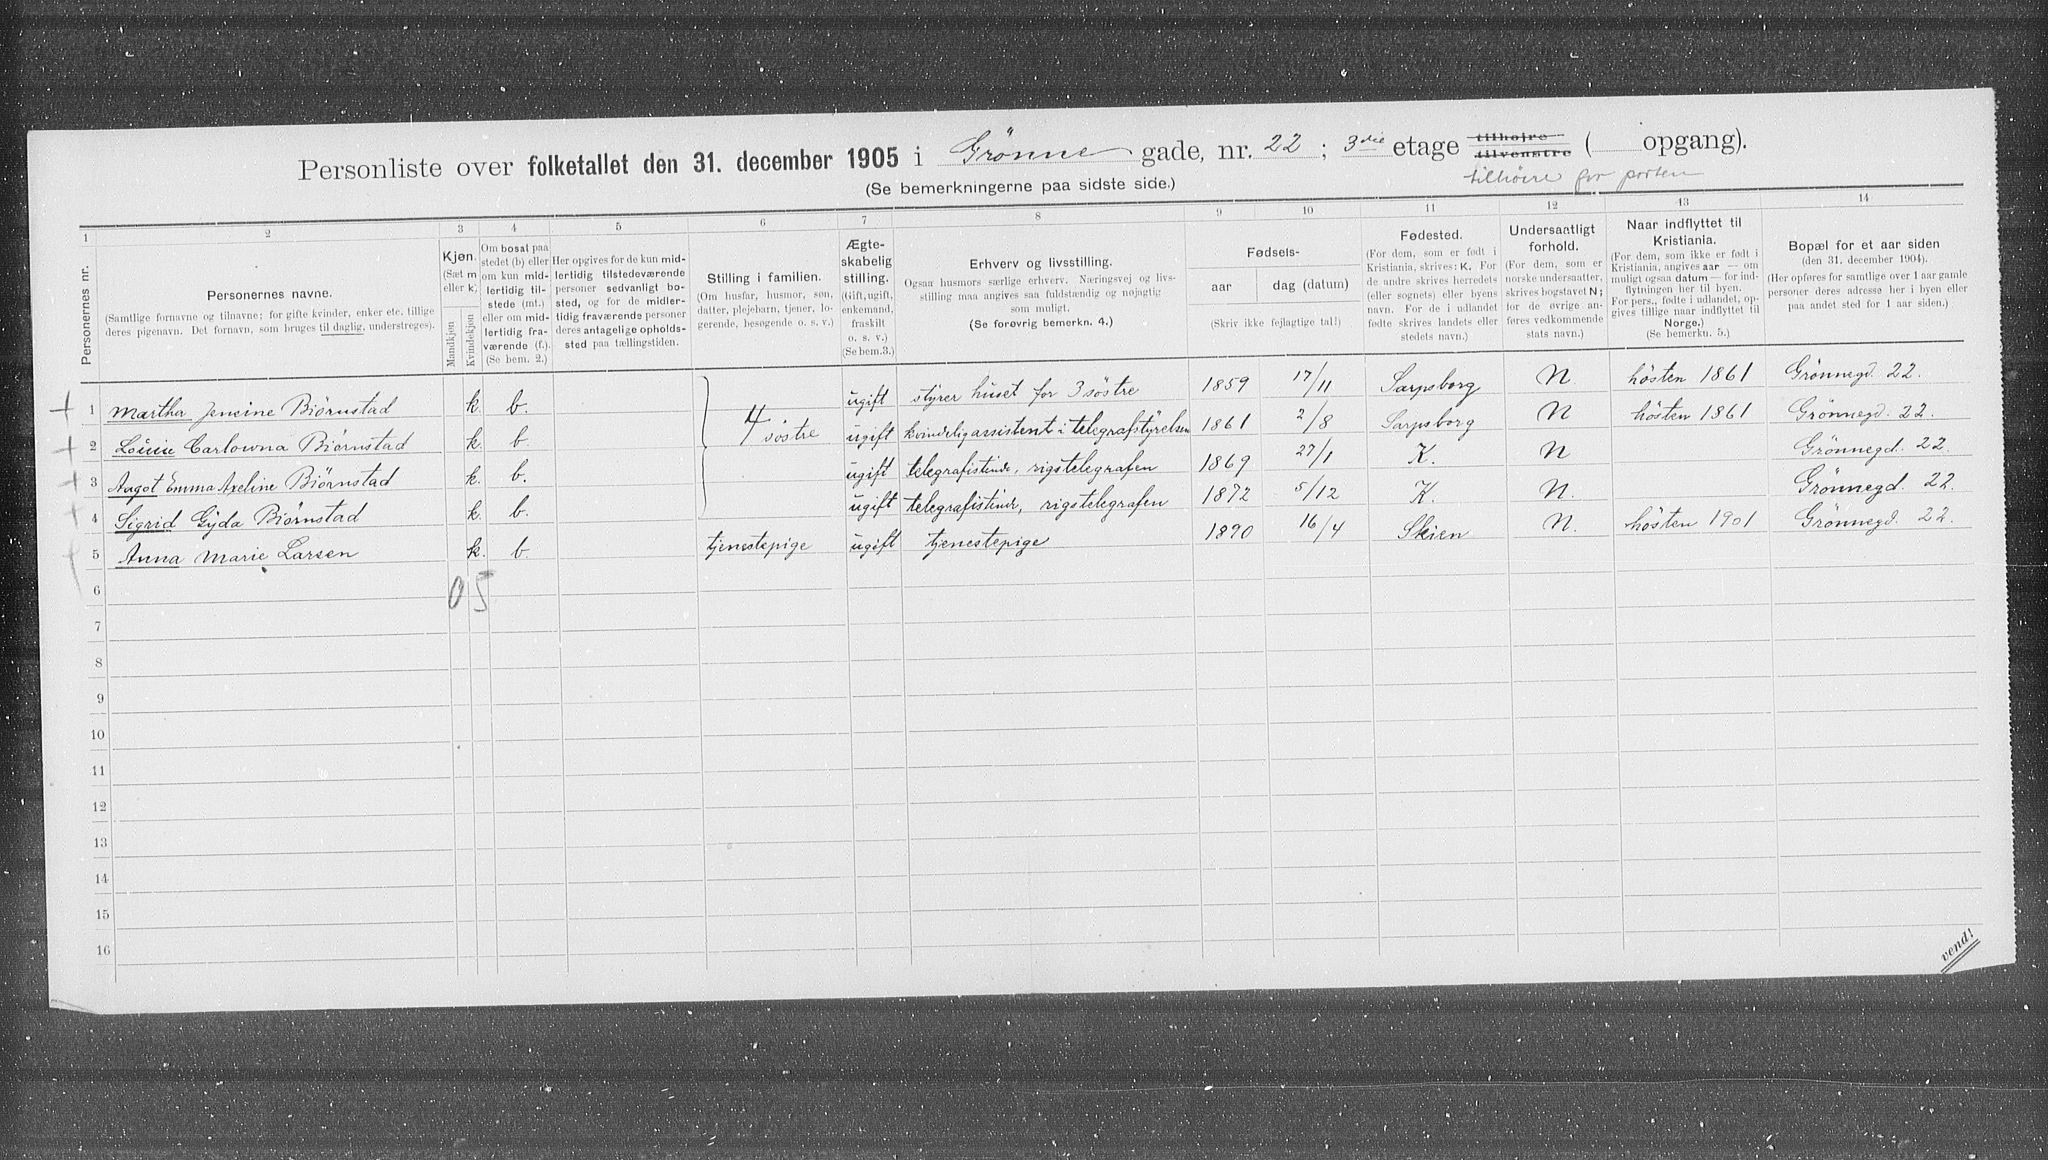 Personliste over folketallet den 31. december 1905 i Grønne gade, nr. 22 ; 3die etage tilhøire tilvenstre ( opgang).
(Se bemerkningerne paa sidste side.) tilhöire for porten
1 2 3 4 5 6 7 8 9 10 11 12 13 14
Personernes nr.
Personernes navne.
(Samtlige fornavne og tilnavne; for gifte kvinder, enker etc. tillige
deres pigenavn. Det fornavn, som bruges til daglig, understreges).
Kjøn.
(Sæt m
eller k)
Mandkjøn
Kvindekjøn
Om bosat paa
stedet (b) eller
om kun mid-
lertidig til-
stede (mt.)
eller om mid-
lertidig fra-
værende (f.).
(Se bem. 2.)
Her opgives for de kun mid-
lertidig tilstedeværende
personer sedvanligt bo-
sted, og for de midler-
tidig fraværende personer
deres antagelige opholds-
sted paa tællingstiden.
Stilling i familien.
(Om husfar, husmor, søn,
datter, plejebarn, tjener, lo-
gerende, besøgende o. s. v.)
Ægte-
skabelig
stilling.
(Gift, ugift,
enkemand,
fraskilt
o. s. v.)
(Se bem. 3.)
Erhverv og livsstilling.
Ogsaa husmors særlige erhverv. Næringsvej og livs-
stilling maa angives saa fuldstændig og nøjagtig
som muligt.
(Se forøvrig bemerkn. 4.)
Fødsels-
aar dag (datum)
(Skriv ikke fejlagtige tal!)
Fødested.
(For dem, som er født i
Kristiania, skrives: K. For
de andre skrives herredets
(eller sognets) eller byens
navn. For de i udlandet
fødte skrives landets eller
stedets navn.)
Undersaatligt
forhold.
(For dem, som er
norske undersaatter,
skrives bogstavet N;
for de øvrige an-
føres vedkommende
stats navn.)
Naar indflyttet til
Kristiania.
(For dem, som ikke er født i
Kristiania, angives aar — om
muligt ogsaa datum — for ind-
flytningen her til byen.
For pers., fødte i udlandet, op-
gives tillige naar indflyttet til
Norge.)
(Se bemerkn. 5.)
Bopæl for et aar siden
(den 31. december 1904).
(Her opføres for samtlige over 1 aar gamle
personer deres adresse her i byen eller
paa andet sted for 1 aar siden.)
+ 1 Martha Jensine Biørnstad k. b. ugift styrer huset for 3 söstre 1859 17/11 Sarpsborg N hösten 1861 Grönnegd. 22.
+ 2 Lovise Carlowna Biørnstad k. b. 4 söstre ugift kvindelig assistent i telegrafstyrelsen 1861 2/8 Sarpsborg N hösten 1861 Grönnegd. 22.
+ 3 Aagot Emma Axeline Biørnstad k. b. ugift telegrafistinde, rigstelegrafen 1869 27/1 K. N Grönnegd. 22.
+ 4 Sigrid Gyda Biørnstad k. b. ugift telegrafistinde, rigstelegrafen 1872 5/12 K. N. Grönnegd. 22.
+ 5 Anna Marie Larsen k. b. tjenestepige ugift tjenestepige 1890 16/4 Skien N. hösten 1901 Grönnegd. 22.
6 0 5
7
8
9
10
11
12
13
14
15
16
vend!